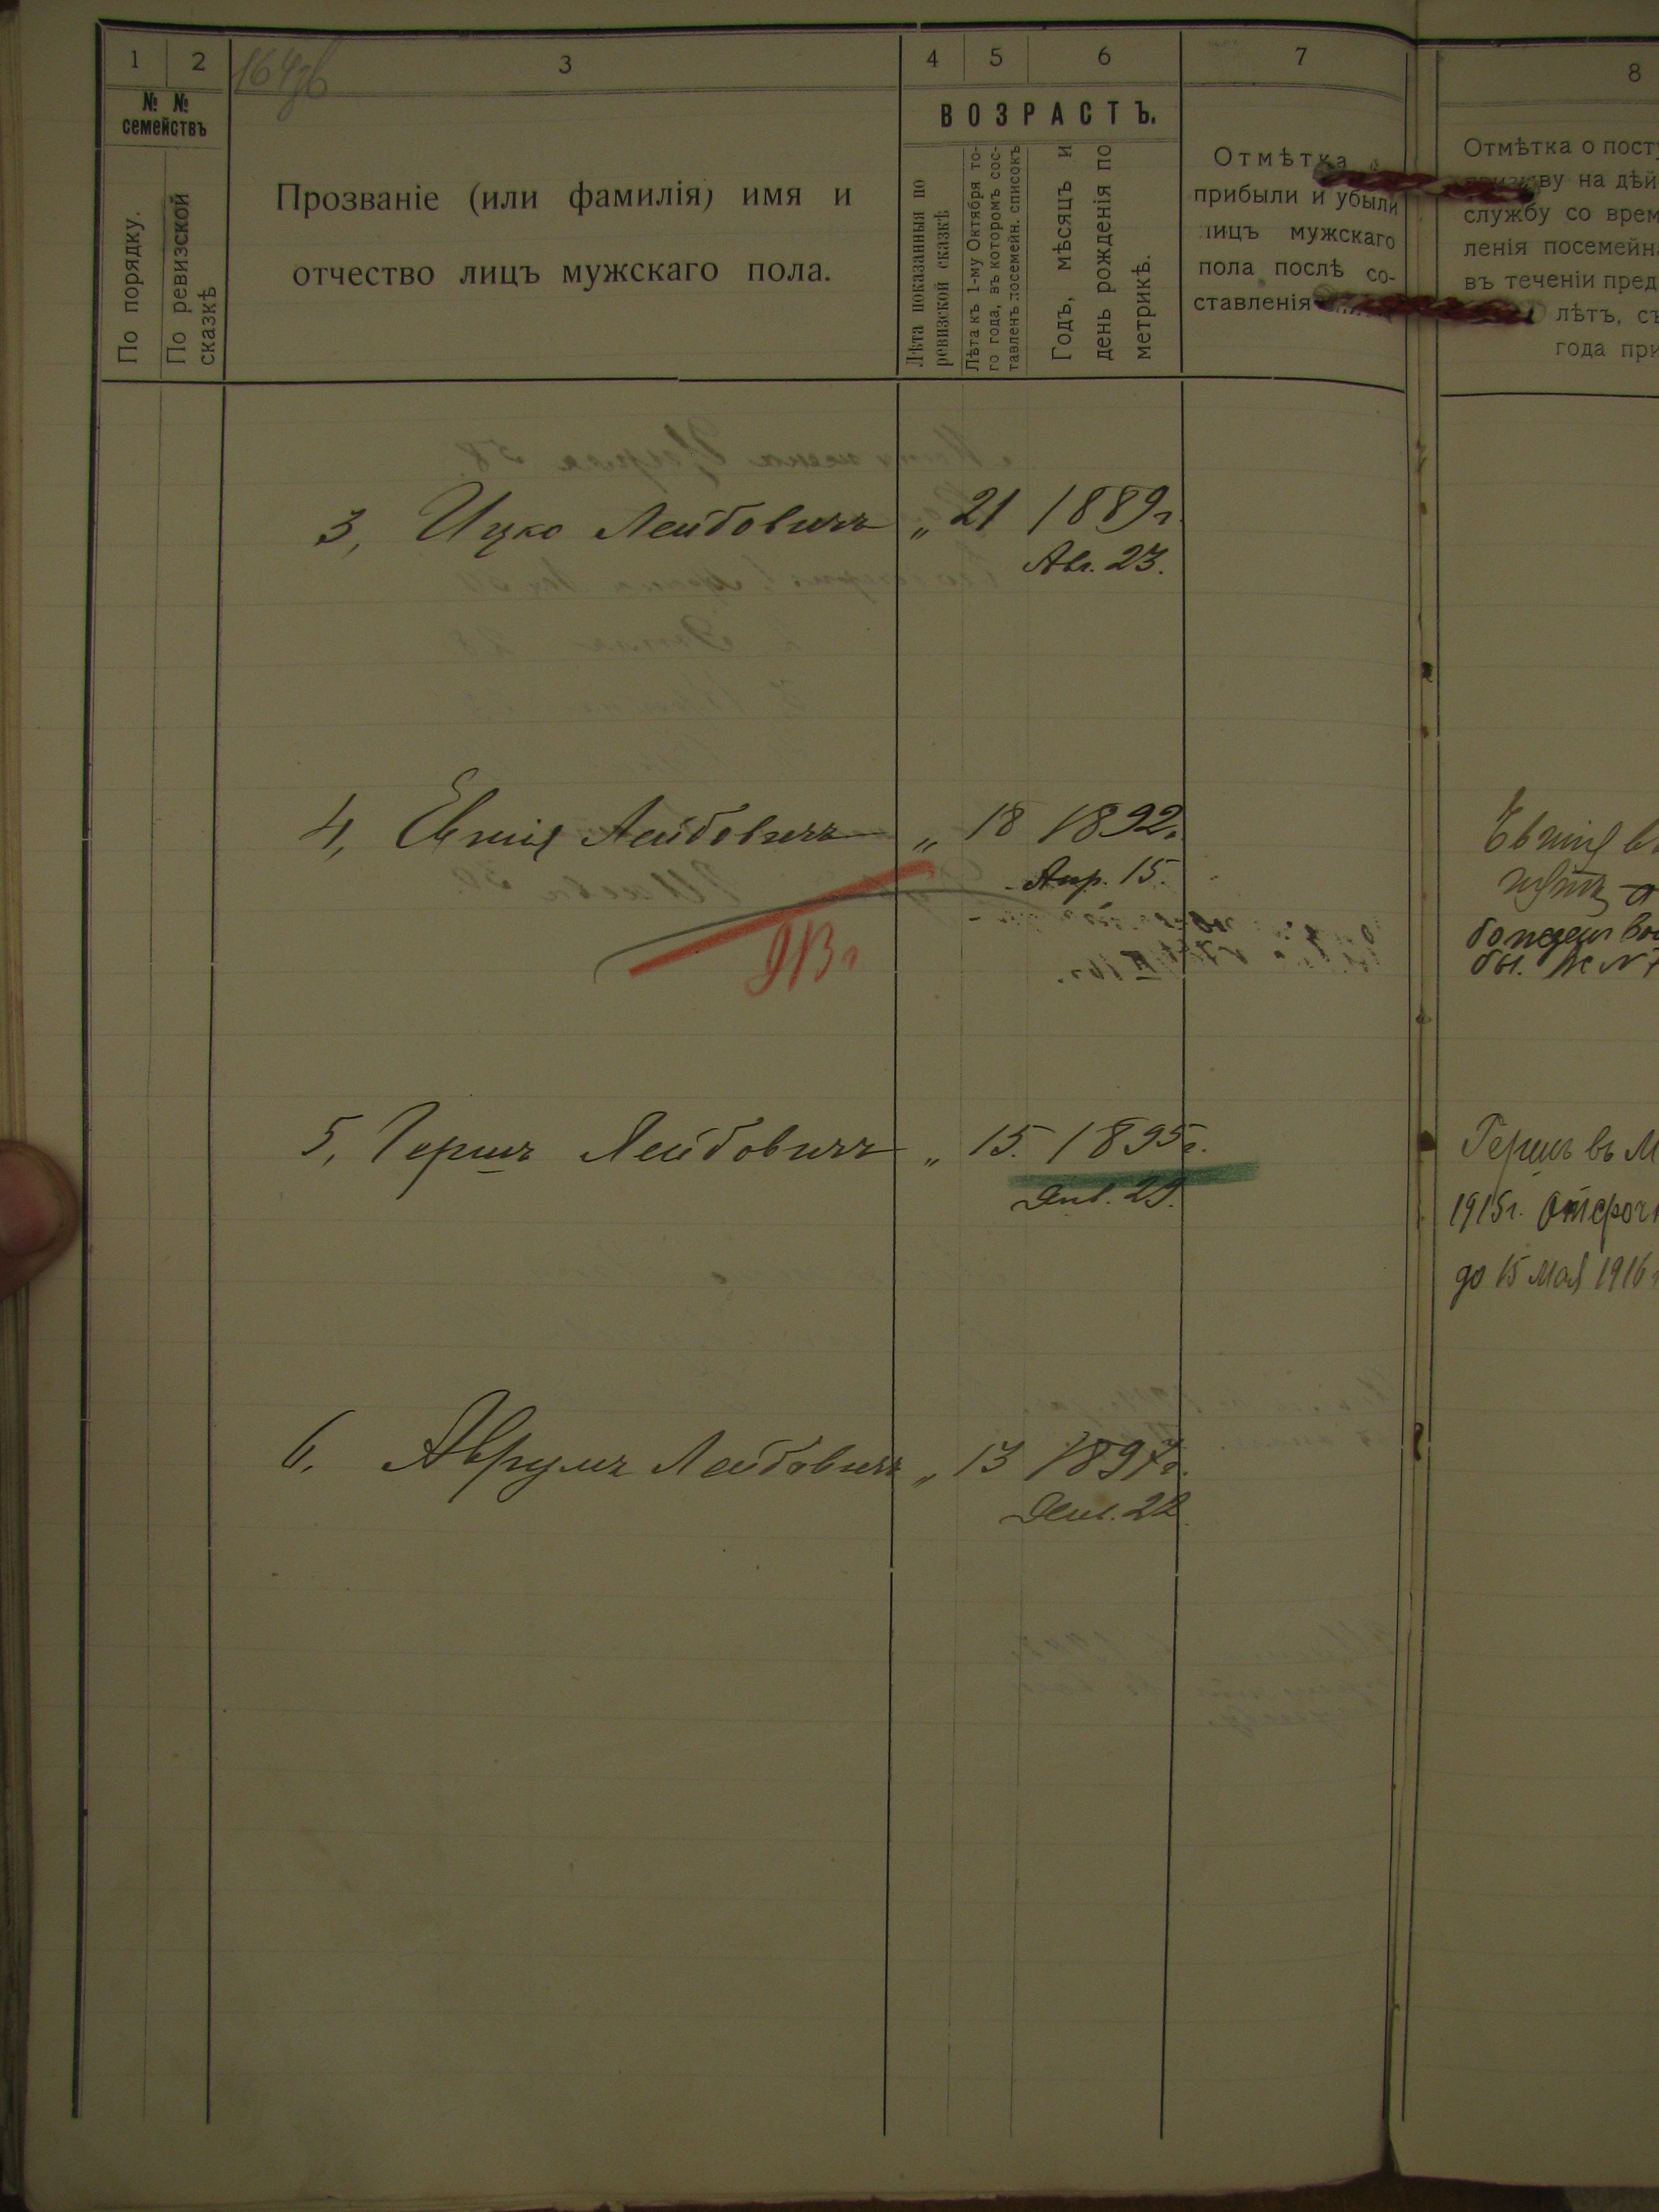 1 2 3 4 5 6 7 8
№ № семействъ
По порядку.
По ревизской сказкѣ
Прозваніе (или фамилія) имя и
отчество лицъ мужскаго пола.
ВОЗРАСТЪ.
Лѣта показанныя по
ревизской сказкѣ
Лѣта къ 1-му Октября то-
го года, въ которомъ сос-
тавленъ посемейн. списокъ
Годъ, мѣсяцъ и
день рожденія по
метрикѣ.
Отмѣтка
прибыли и убыли
лицъ мужскаго
пола послѣ со-
ставленія
Отмѣтка о пост
ву на дѣй
службу со врем
ленія посемейн
въ теченіи пред
лѣтъ, съ
года при
3, Ицко Лейбовичъ „ 21 1889г.
Авг. 23.
4, Евшія Лейбовичъ „ 18 1892г.
Апр. 15.
913г
Евшія въ
5, Гершъ Лейбовичъ „ 15. 1895г.
Янв. 29.
Гершъ въ М
1915г. Отсроч
до 15 Мая 1916г
6. Аврумъ Лейбовичъ „ 13 1897г.
22